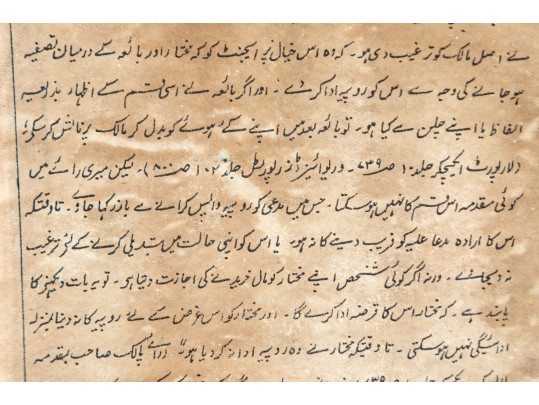 نے اصل مالک کو ترغیب دی ہو۔ کہ وہ اس خیال پر ایجنٹ کو کہ مختار اور بائعہ کے درمیان تصفیہ
ہو جانے کی وجہ سے اس کو روپیہ ادا کر دے۔ اور اگر بائعہ نے اسی قسم کے اظہار بذریعہ
الفاظ یا اپنے چلن سے کیا ہو۔ تو بائعہ بعد میں اپنے کہے ہوئے کو بدل کر مالک پر نالش کر سکے؛
(لا رپورٹ ایکسچیکر جلد ۱۰ ص ۷۳۹۔ ورلوائیز ڈز رپورٹل جلد ۱۰۲ ص ۸۰۰)۔ لیکن میری رائے میں
کوئی مقدمہ اس قسم کا نہیں ہو سکتا۔ جس میں مدعی کو روپیہ واپس کرانے سے باز رکھا جاوے۔ تا وقتیکہ
اس کا ارادہ مدعا علیہ کو فریب دینے کا نہ ہو۔ یا اس کو اپنی حالت میں تبدیلی کرنے کے لئے ترغیب
نہ دیجائے۔ ورنہ اگر کوئی شخص اپنے مختار کو مال خریدنے کی اجازت دیتا ہے۔ تو یہ بات دیکھنے کا
پابند ہے۔ کہ مختار اس کا قرضہ ادا کرے گا۔ اور مختار کو اس غرض کے لئے روپیہ کا نہ دینا بمنزلہ
ادائیگی نہیں ہو سکتی۔ تا وقتیکہ مختار نے وہ روپیہ ادا نہ کر دیا ہو" (رائے پالک صاحب بمقدمہ